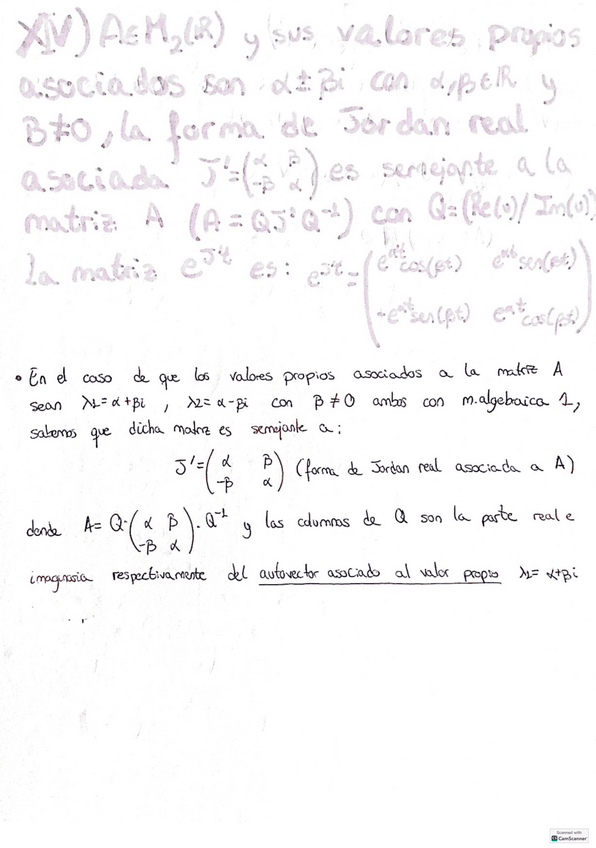 XIV) A∈M₂(ℝ) y sus valores propios
asociados son α±βi con α,β∈ℝ y
β≠0, la forma de Jordan real
asociada J'=(α β; -β α) es semejante a la
matriz A (A=QJ'Q⁻¹) con Q=(Re(v)/Im(v))
La matriz e^{J't} es: e^{J't}=(e^{αt}cos(βt) e^{αt}sen(βt)
-e^{αt}sen(βt) e^{αt}cos(βt))
• En el caso de que los valores propios asociados a la matriz A
sean λ₁=α+βi, λ₂=α-βi con β≠0 ambos con m.algebaica 1,
sabemos que dicha matriz es semejante a:
J'=(α β; -β α) (forma de Jordan real asociada a A)
donde A=Q·(α β; -β α)·Q⁻¹ y las columnas de Q son la parte real e
imaginaria respectivamente del autovector asociado al valor propio λ₁=α+βi
Scanned with
CamScanner